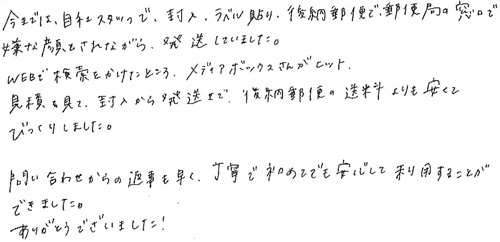 今までは、自社スタッフで、封入、ラベル貼り、後納郵便で、郵便局の窓口で
嫌な顔をされながら、発送していました。
WEBで検索をかけたところ、メディアボックスさんがヒット。
見積を見て、封入から発送まで、後納郵便の送料よりも安くて
びっくりしました。
問い合わせからの返事も早く、丁寧で初めてでも安心して利用することが
できました。
ありがとうございました!